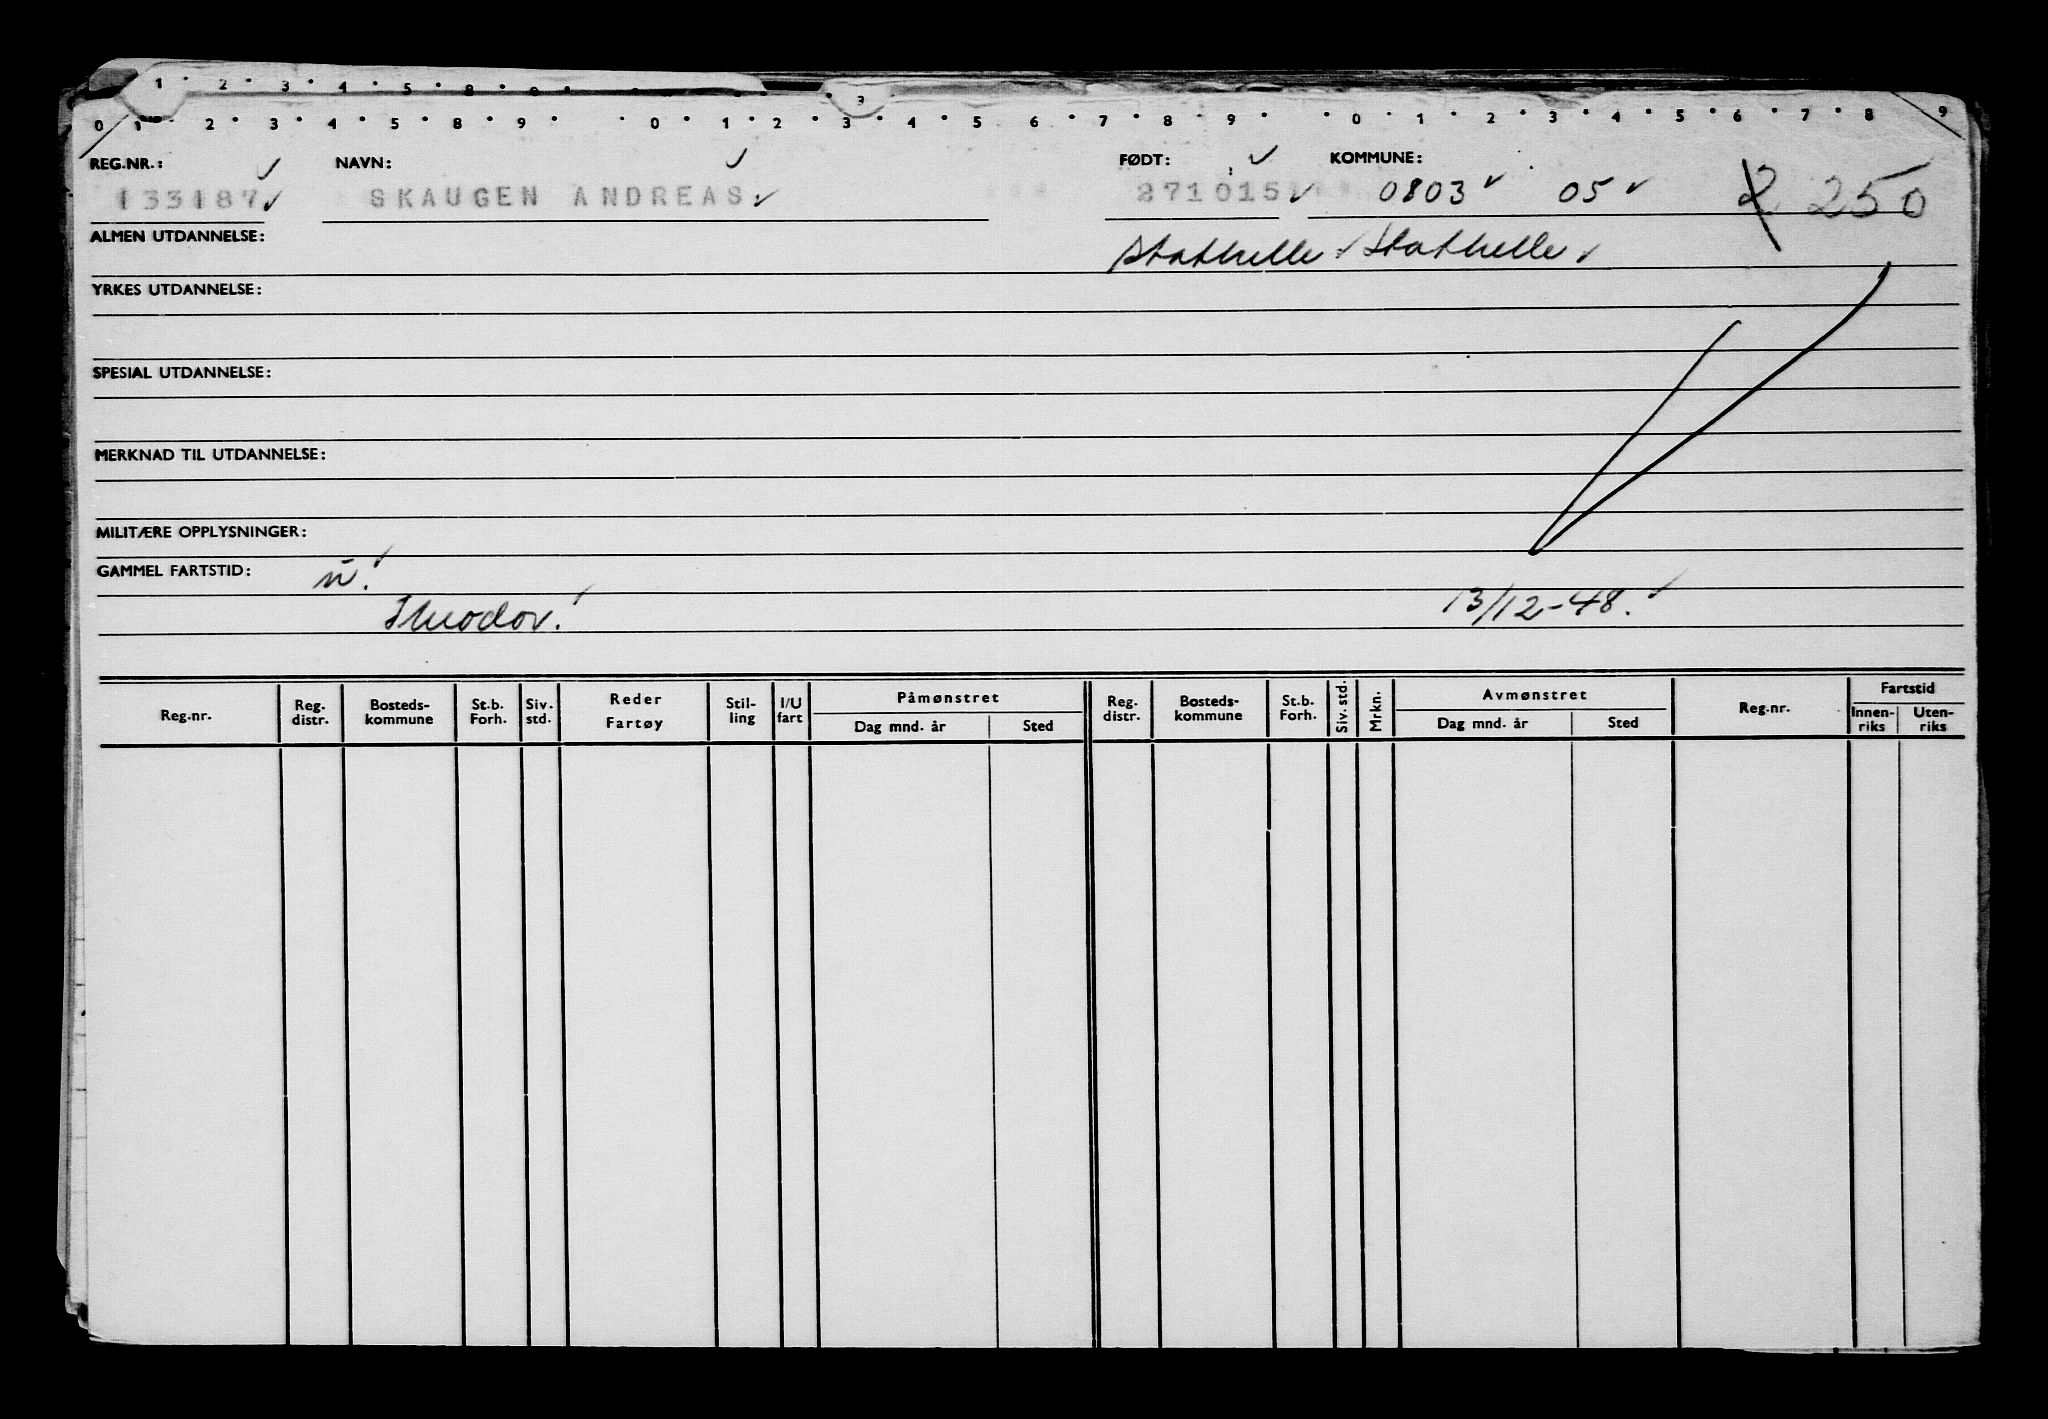 1 2 3 4 5 8 9 3
0 1 2 3 4 5 8 9 0 1 2 3 4 5 6 7 8 9 0 1 2 3 4 5 6 7 8 9
REG.NR.: NAVN: FØDT: KOMMUNE:
133187 SKAUGEN ANDREAS 271015 0803 05 2 250
ALMEN UTDANNELSE: Stathelle Stathelle
YRKES UTDANNELSE:
SPESIAL UTDANNELSE:
MERKNAD TIL UTDANNELSE:
MILITÆRE OPPLYSNINGER:
GAMMEL FARTSTID: u.
Theodor. 13/12-48.
Reg.nr. Reg. distr. Bosteds-kommune St.b. Forh. Siv. std. Reder Fartøy Stil-ling I/U fart Påmønstret Dag mnd. år Sted Reg. distr. Bosteds-kommune St.b. Forh. Siv. std. Mrkn. Avmønstret Dag mnd. år Sted Reg.nr. Fartstid Innen-riks Uten-riks